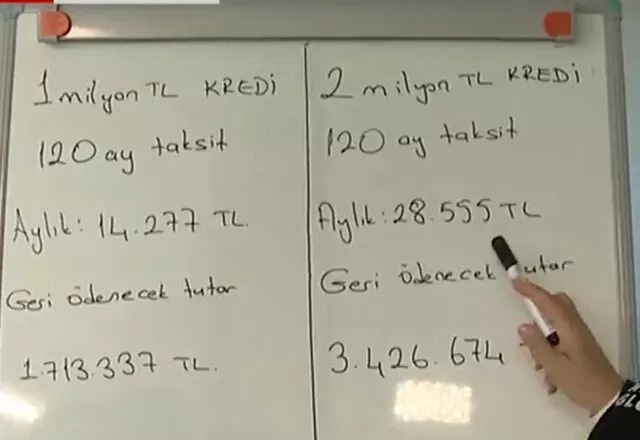 1 milyon TL KREDİ
120 ay taksit
Aylık: 14.277 TL.
Geri ödenecek tutar
1.713.337 TL.
2 milyon TL KREDİ
120 ay taksit
Aylık: 28.555 TL
Geri ödenecek tutar
3.426.674